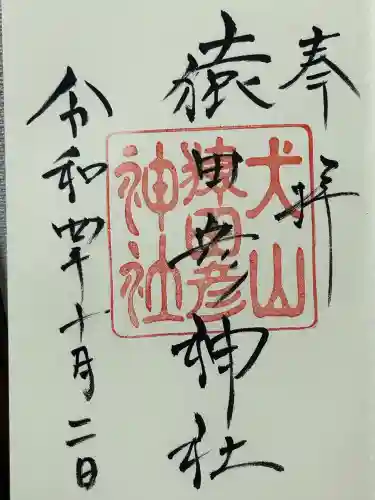 奉拝
猿田彦神社
犬山
猿田彦
神社
令和四年十月二日